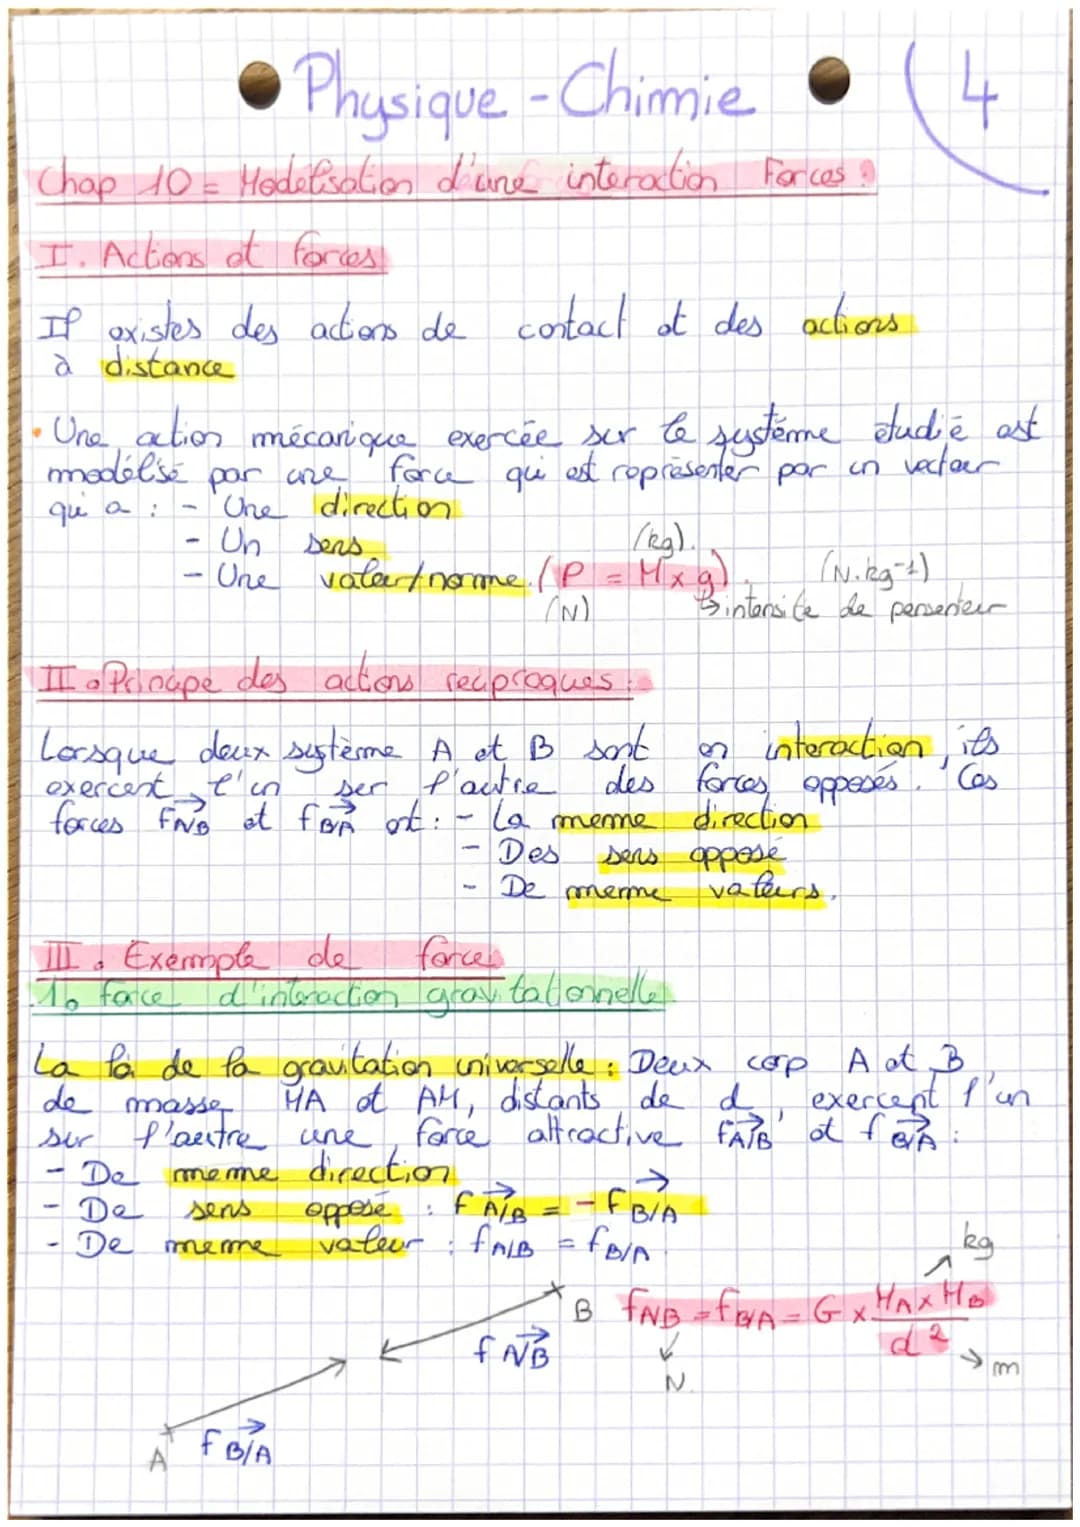 Physique - Chimie
4
Chap 10 = Modélisation d'une interaction Forces :
I. Actions et forces
Il existes des actions de contact et des actions
à distance
• Une action mécanique exercée sur le système étudié est
modélisé par une force qui est représenter par un vecteur
qui a : - Une direction
- Un sens
(kg).
- Une valeur/norme. (P = M x g). (N.kg-1)
(N) ↳ intensite de pesenteur
II. Principe des actions reciproques :
Lorsque deux système A et B sont en interaction, ils
exercent l'un sur l'autre des forces opposés. Ces
forces fA/B et fB/A ont : - La meme direction
- Des sens opposé
- De meme valeurs.
III. Exemple de forces
1. force d'interaction gravitationnelle
La loi de la gravitation universelle : Deux corp A et B,
de masse MA et AM, distants de d, exercent l'un
sur l'autre une force attractive fA/B et fB/A :
- De meme direction
- De sens opposé : fA/B = - fB/A
- De meme valeur : fA/B = fB/A
kg
B fA/B = fB/A = G x MA x MB
d²
fA/B
N
m
A fB/A